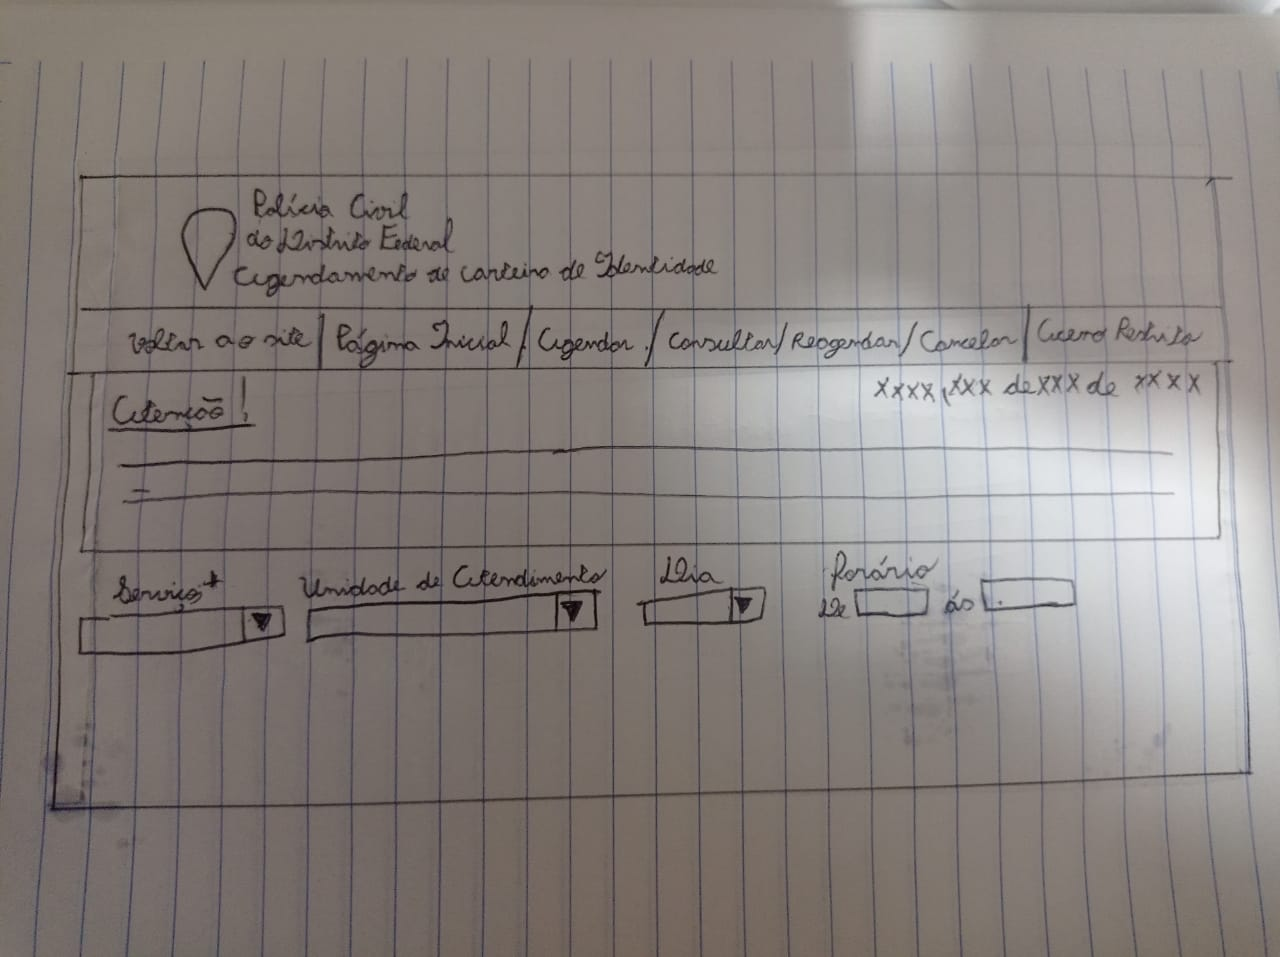 Polícia Civil
do Distrito Federal
Agendamento de carteira de Identidade
Voltar ao site | Página Inicial / Agendar / Consultar / Reagendar / Cancelar | Acesso Restrito
xxxx, xxx de xxx de xxxx
Atenção!
Serviço* Unidade de Atendimento Dia Horário
De às